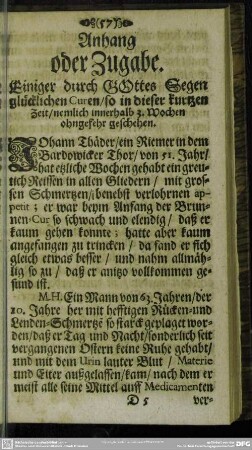 (57)
Anhang
oder Zugabe.
Einiger durch GOttes Segen
glücklichen Curen/so in dieser kurtzen
Zeit/nemlich innerhalb 3. Wochen
ohngefehr geschehen.
JOhann Thäder/ein Riemer in dem
Bardowicker Thor/von 51. Jahr/
hat etzliche Wochen gehabt ein greu-
lich Reissen in allen Gliedern/mit gros-
sen Schmertzen/benebst verlohrnen ap-
petit; er war beym Anfang der Brun-
nen-Cur so schwach und elendig/daß er
kaum gehen konnte; hatte aber kaum
angefangen zu trincken/da fand er sich
gleich etwas besser/und nahm allmäh-
lig so zu/daß er anitzo vollkommen ge-
sund ist.
M.H. Ein Mann von 63. Jahren/der
20. Jahre her mit hefftigen Rücken-und
Lenden-Schmertze so starck geplaget wor-
den/daß er Tag und Nacht/sonderlich seit
vergangenen Ostern keine Ruhe gehabt/
und mit dem Urin lauter Blut/Materie
und Eiter außgelassen/kam/nach dem er
meist alle seine Mittel auff Medicamenten
D 5 ver-